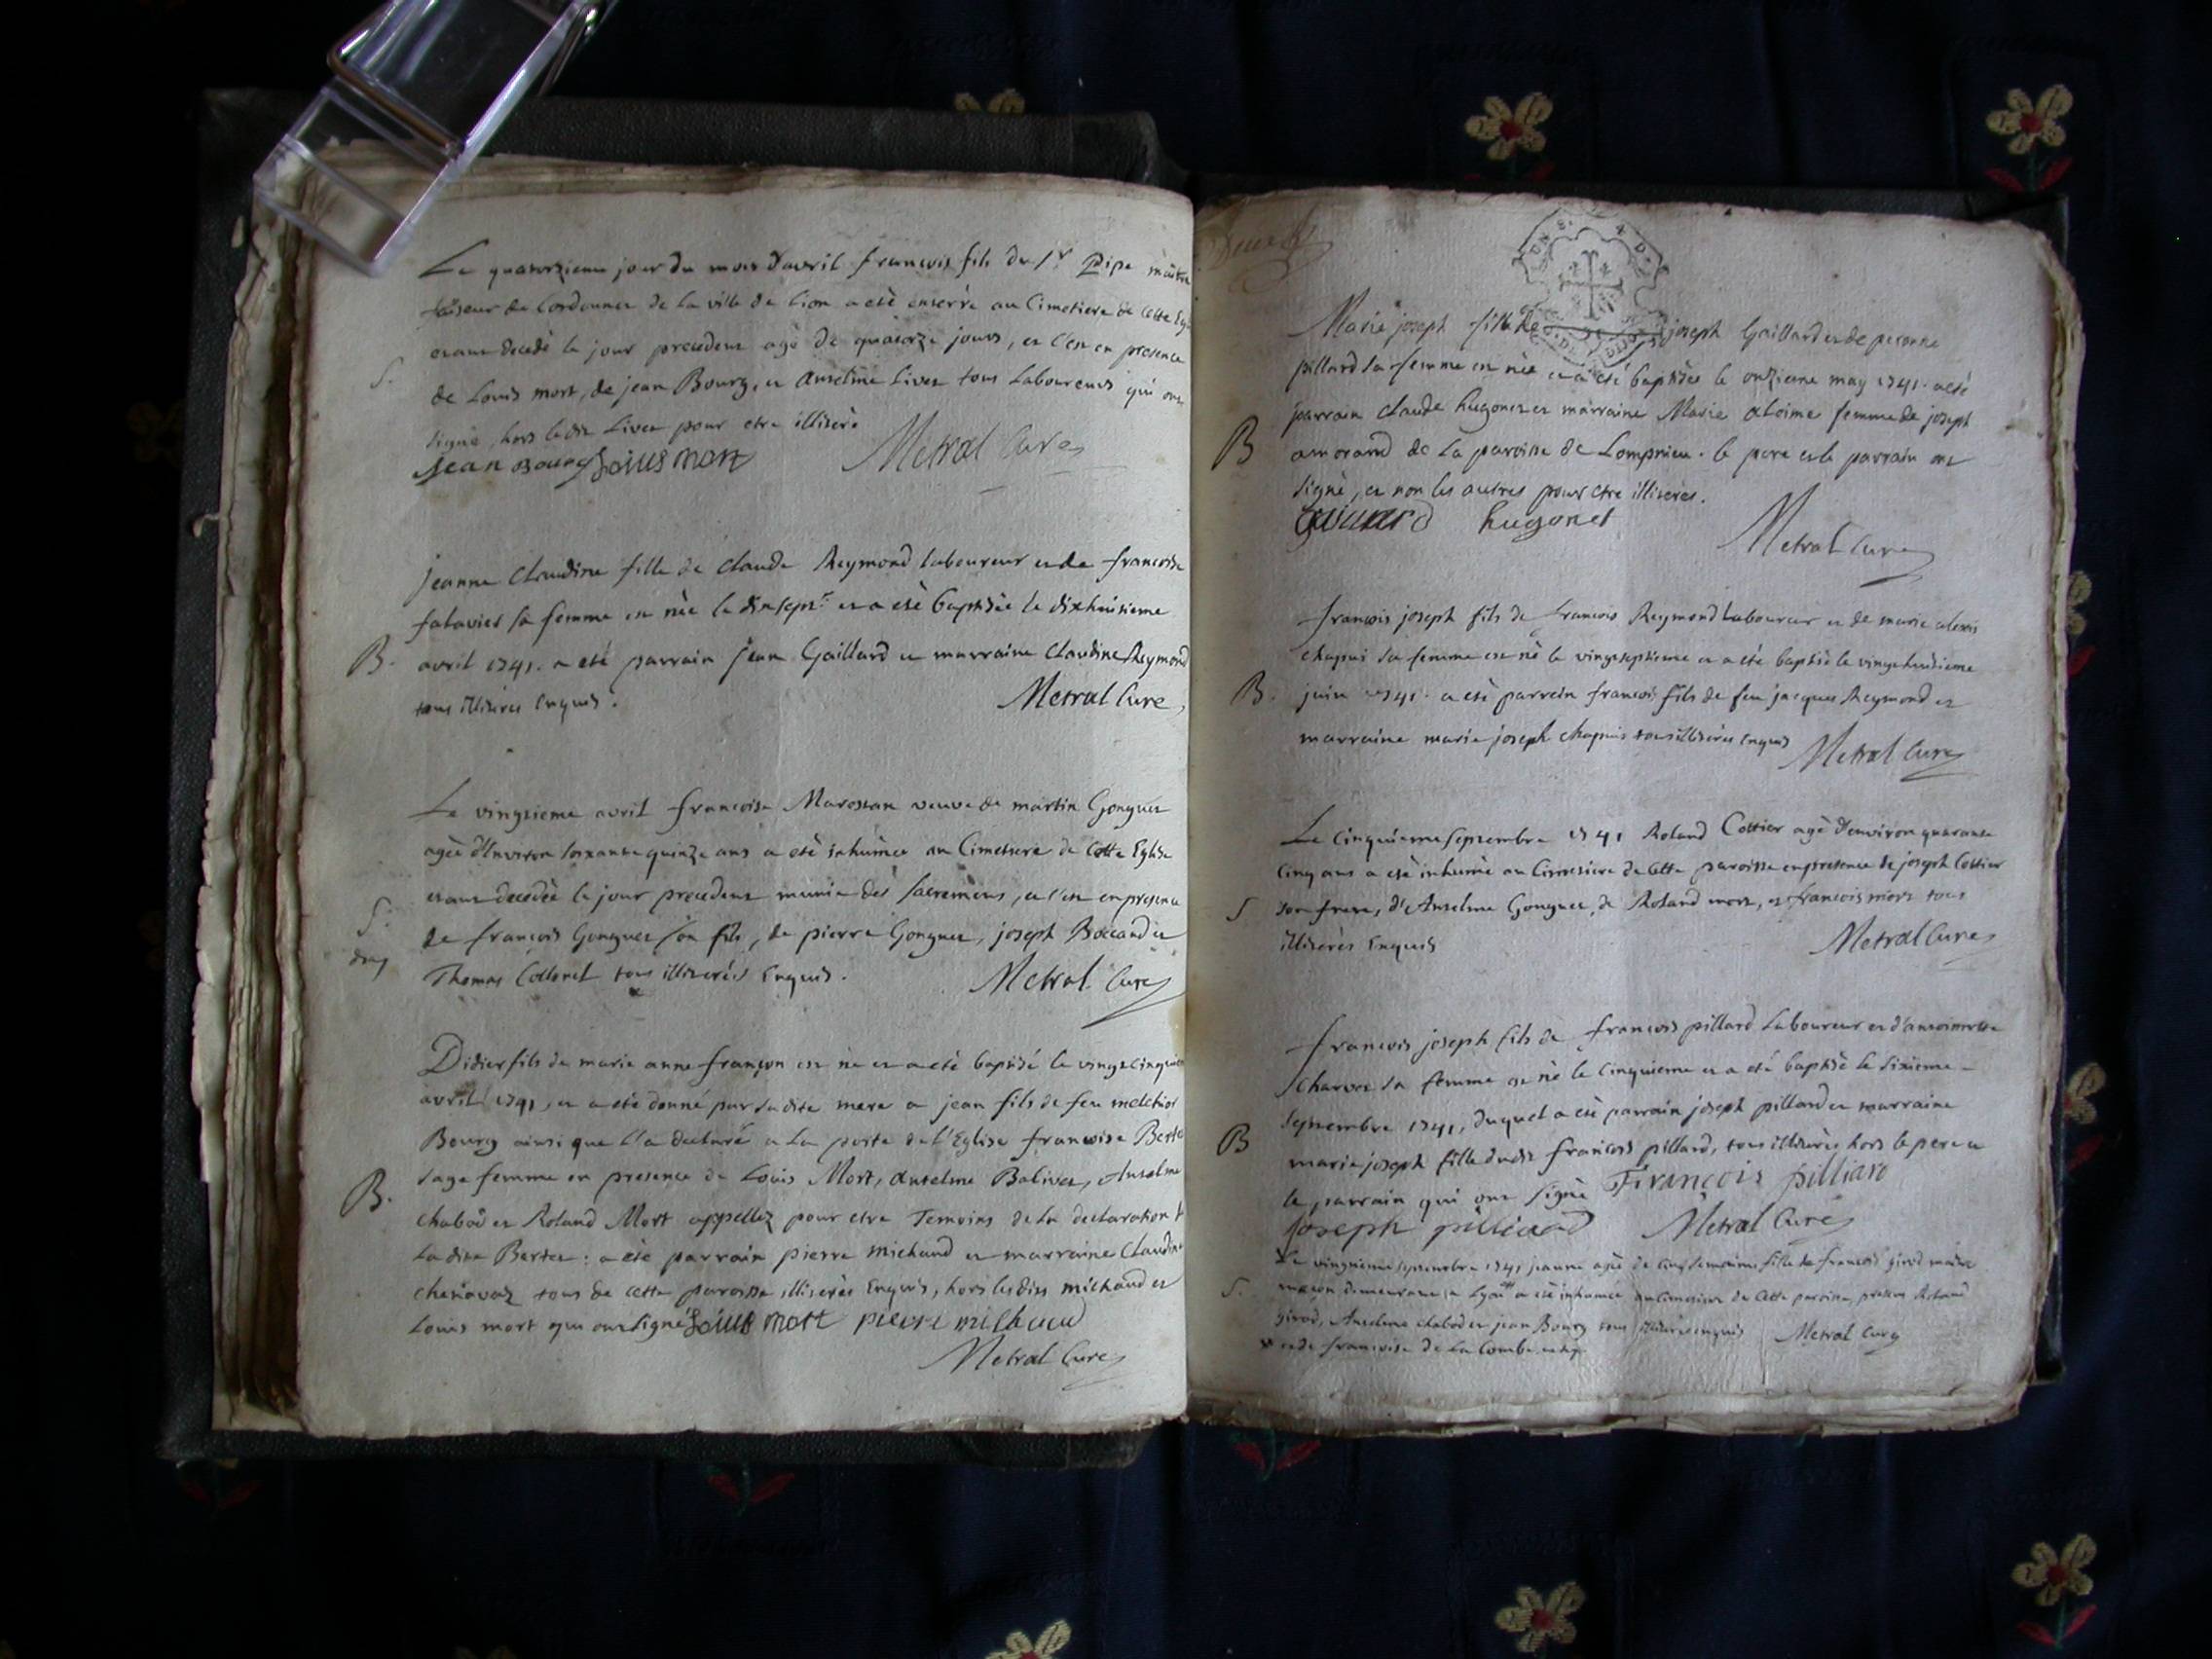 Le quatorzieme jour du mois d'avril francois fils du Sr Pipe maitre
faiseur de Cordonnes de la ville de Lion a eté enterré au Cimetiere de cette Egl
etant decedé le jour precedent agé de quatorze jours, et c'est en presence
S.
de Louis mort, de jean Bourg, et Anselme Livet tous Laboureurs qui ont
signé, hors ledit Livet pour etre illiteré
jean Bourg Louis mort Metral Curé
jeanne Claudine fille de Claude Reymond laboureur et de francoise
falavier sa femme est née le dixsept.e et a eté baptisée le dixhuitieme
B.
avril 1741. a eté parrain jean Gaillard et marraine Claudine Reymond
tous illiterés Enquis.
Metral Curé
Le vingtieme avril francoise Marossan veuve de martin Gonguet
agée d'Environ soixante quinze ans a eté inhumée au Cimetiere de Cette Eglise
etant decedée le jour precedent munie des sacremens, et c'est en presence
S.
de francois Gonguet son fils, de pierre Gonguet, joseph Boccand et
Thomas Collonel tous illiterés Enquis.
Metral Curé
Didier fils de marie anne françon est né et a eté baptisé le vingtcinquie
avril 1741, et a eté donné par sadite mere a jean fils de feu melchior
Bourg ainsi que l'a declaré a la porte de l'Eglise francoise Bertet
sage femme en presence de Louis Mort, Anselme Balivet, Anselme
B.
Chabod et Roland Mort appellez pour etre Temoins de la declaration
La dite Bertet: a eté parrain pierre michaud et marraine Claudine
chenavaz tous de cette paroisse illiterés Enquis, hors lesdits michaud et
Louis mort qui ont signé Louis mort pierre michaud
Metral Curé
Marie joseph fille de joseph Gaillard et de peronne
pillard sa femme est née et a eté baptisée le onzieme may 1741. a eté
parrain Claude hugonet et marraine Marie aloime femme de joseph
B
amorand de la paroisse de Lompnieu. le pere et le parrain ont
signé, et non les autres pour etre illiterés.
Gaillard hugonet
Metral Curé
francois joseph fils de francois Reymond Laboureur et de marie alexis
chapui sa femme est né le vingtseptieme et a eté baptisé le vingthuitieme
B.
juin 1741. a eté parrein francois fils de feu jacques Reymond et
marraine marie joseph chapuis tous illiterés Enquis
Metral Curé
Le Cinquieme septembre 1741 Roland Cottier agé d'environ quarante
Cinq ans a eté inhumé au Cimetiere de Cette paroisse en presence de joseph Cottier
S
son frere, d'Anselme Gonguet, de Roland mort, et francois mort tous
illiterés Enquis
Metral Curé
francois joseph fils de francois pillard Laboureur et d'antoinette
Charvet sa femme est né le Cinquieme et a eté baptisé le sixieme
septembre 1741, duquel a eté parrain joseph pillard et marraine
B
marie joseph fille dudit francois pillard, tous illiterés hors le pere et
le parrain qui ont signé François pilliard
Joseph pilliard Metral Curé
Le vingtieme septembre 1741 jeanne agée de Cinq semaines fille de francois girod maitre
S.
macon demeurant a Lyon a eté inhumée au Cimetiere de Cette paroisse, presens Roland
girod, Anselme chabod et jean Bourg tous illiterés enquis Metral Curé
et de francoise de la Combe